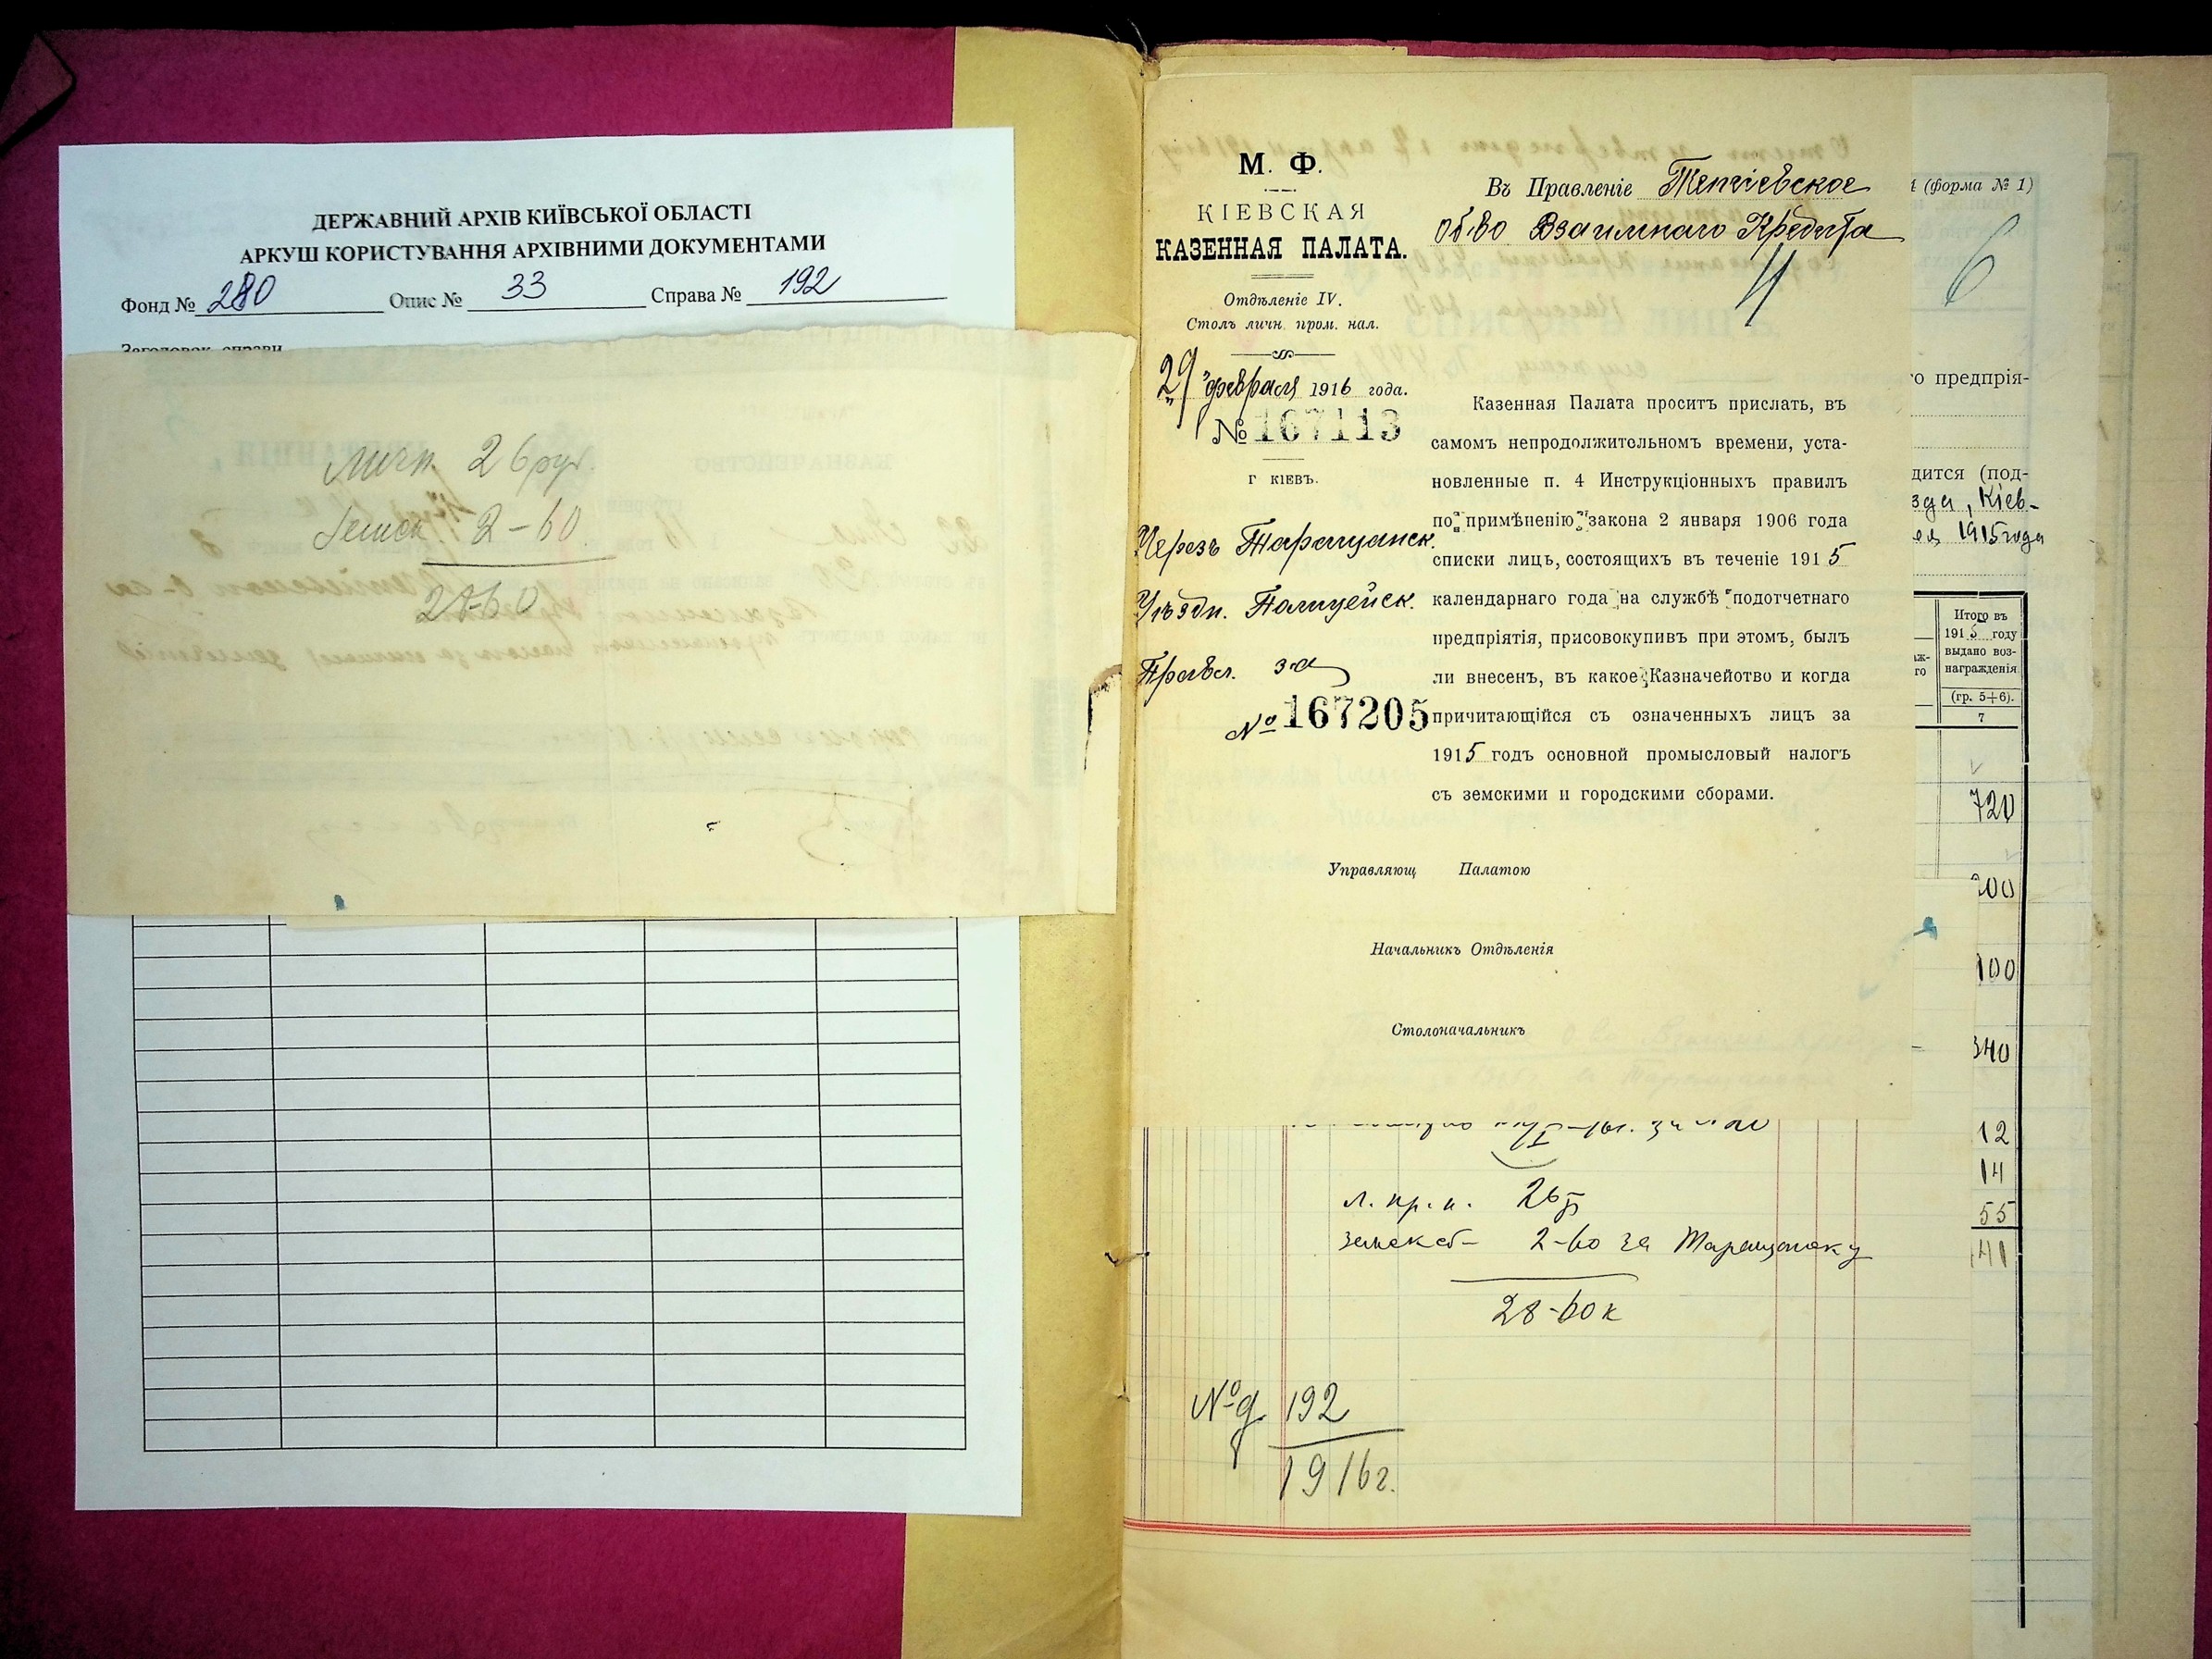 ДЕРЖАВНИЙ АРХІВ КИЇВСЬКОЇ ОБЛАСТІ
АРКУШ КОРИСТУВАННЯ АРХІВНИМИ ДОКУМЕНТАМИ
Фонд № 280 Опис № 33 Справа № 192
Заголовок справи
Личн. 26 руб.
Земск. 2-60
28-60
М. Ф.
КІЕВСКАЯ
КАЗЕННАЯ ПАЛАТА.
Отдѣленіе IV.
Столъ личн. пром. нал.
29 февраля 1916 года.
№ 167113
г КІЕВЪ.
Черезъ Таращанск.
Уѣздн. Полицейск.
Правл. за
№ 167205
Въ Правленіе Тетіевское
об-во Взаимнаго Кредита
4
Казенная Палата проситъ прислать, въ
самомъ непродолжительномъ времени, уста-
новленные п. 4 Инструкціонныхъ правилъ
по примѣненію закона 2 января 1906 года
списки лицъ, состоящихъ въ теченіе 1915
календарнаго года на службѣ подотчетнаго
предпріятія, присовокупивъ при этомъ, былъ
ли внесенъ, въ какое Казначейство и когда
причитающійся съ означенныхъ лицъ за
1915 годъ основной промысловый налогъ
съ земскими и городскими сборами.
Управляющ Палатою
Начальникъ Отдѣленія
Столоначальникъ
л. пр. н. 26 р
земск сб- 2-60 за Таращанску
28-60 к
№ д. 192
1916 г.
(форма № 1)
6
о предпрія-
дится (под-
зда, Кіев-
1915 года
Итого въ
1915 году
выдано воз-
награжденія
(гр. 5+6).
7
720
300
100
340
12
14
55
41